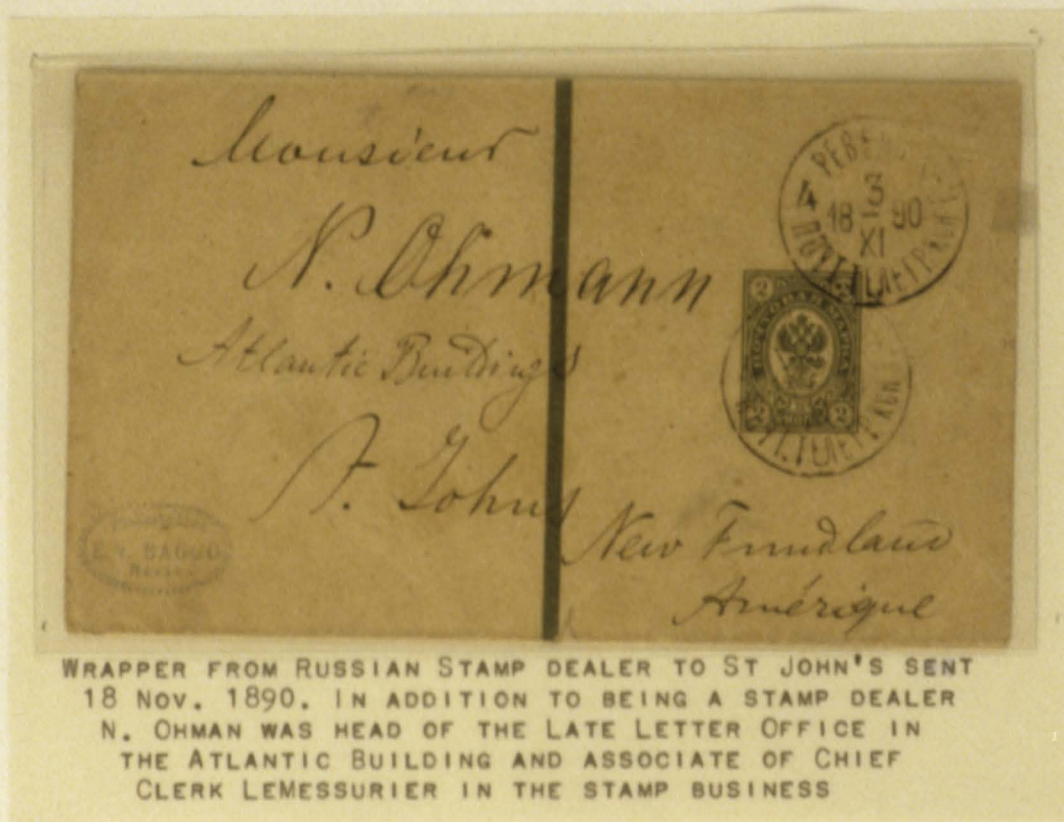 Monsieur
N. Ohmann
Atlantic Buildings
St. Johns
New Fundland
Amérique
4
3
18 90
XI
ПОЧТ ТЕЛЕГР КОН
2
ПОЧТОВАЯ МАРКА
2 2
WRAPPER FROM RUSSIAN STAMP DEALER TO ST JOHN'S SENT
18 NOV. 1890. IN ADDITION TO BEING A STAMP DEALER
N. OHMAN WAS HEAD OF THE LATE LETTER OFFICE IN
THE ATLANTIC BUILDING AND ASSOCIATE OF CHIEF
CLERK LEMESSURIER IN THE STAMP BUSINESS